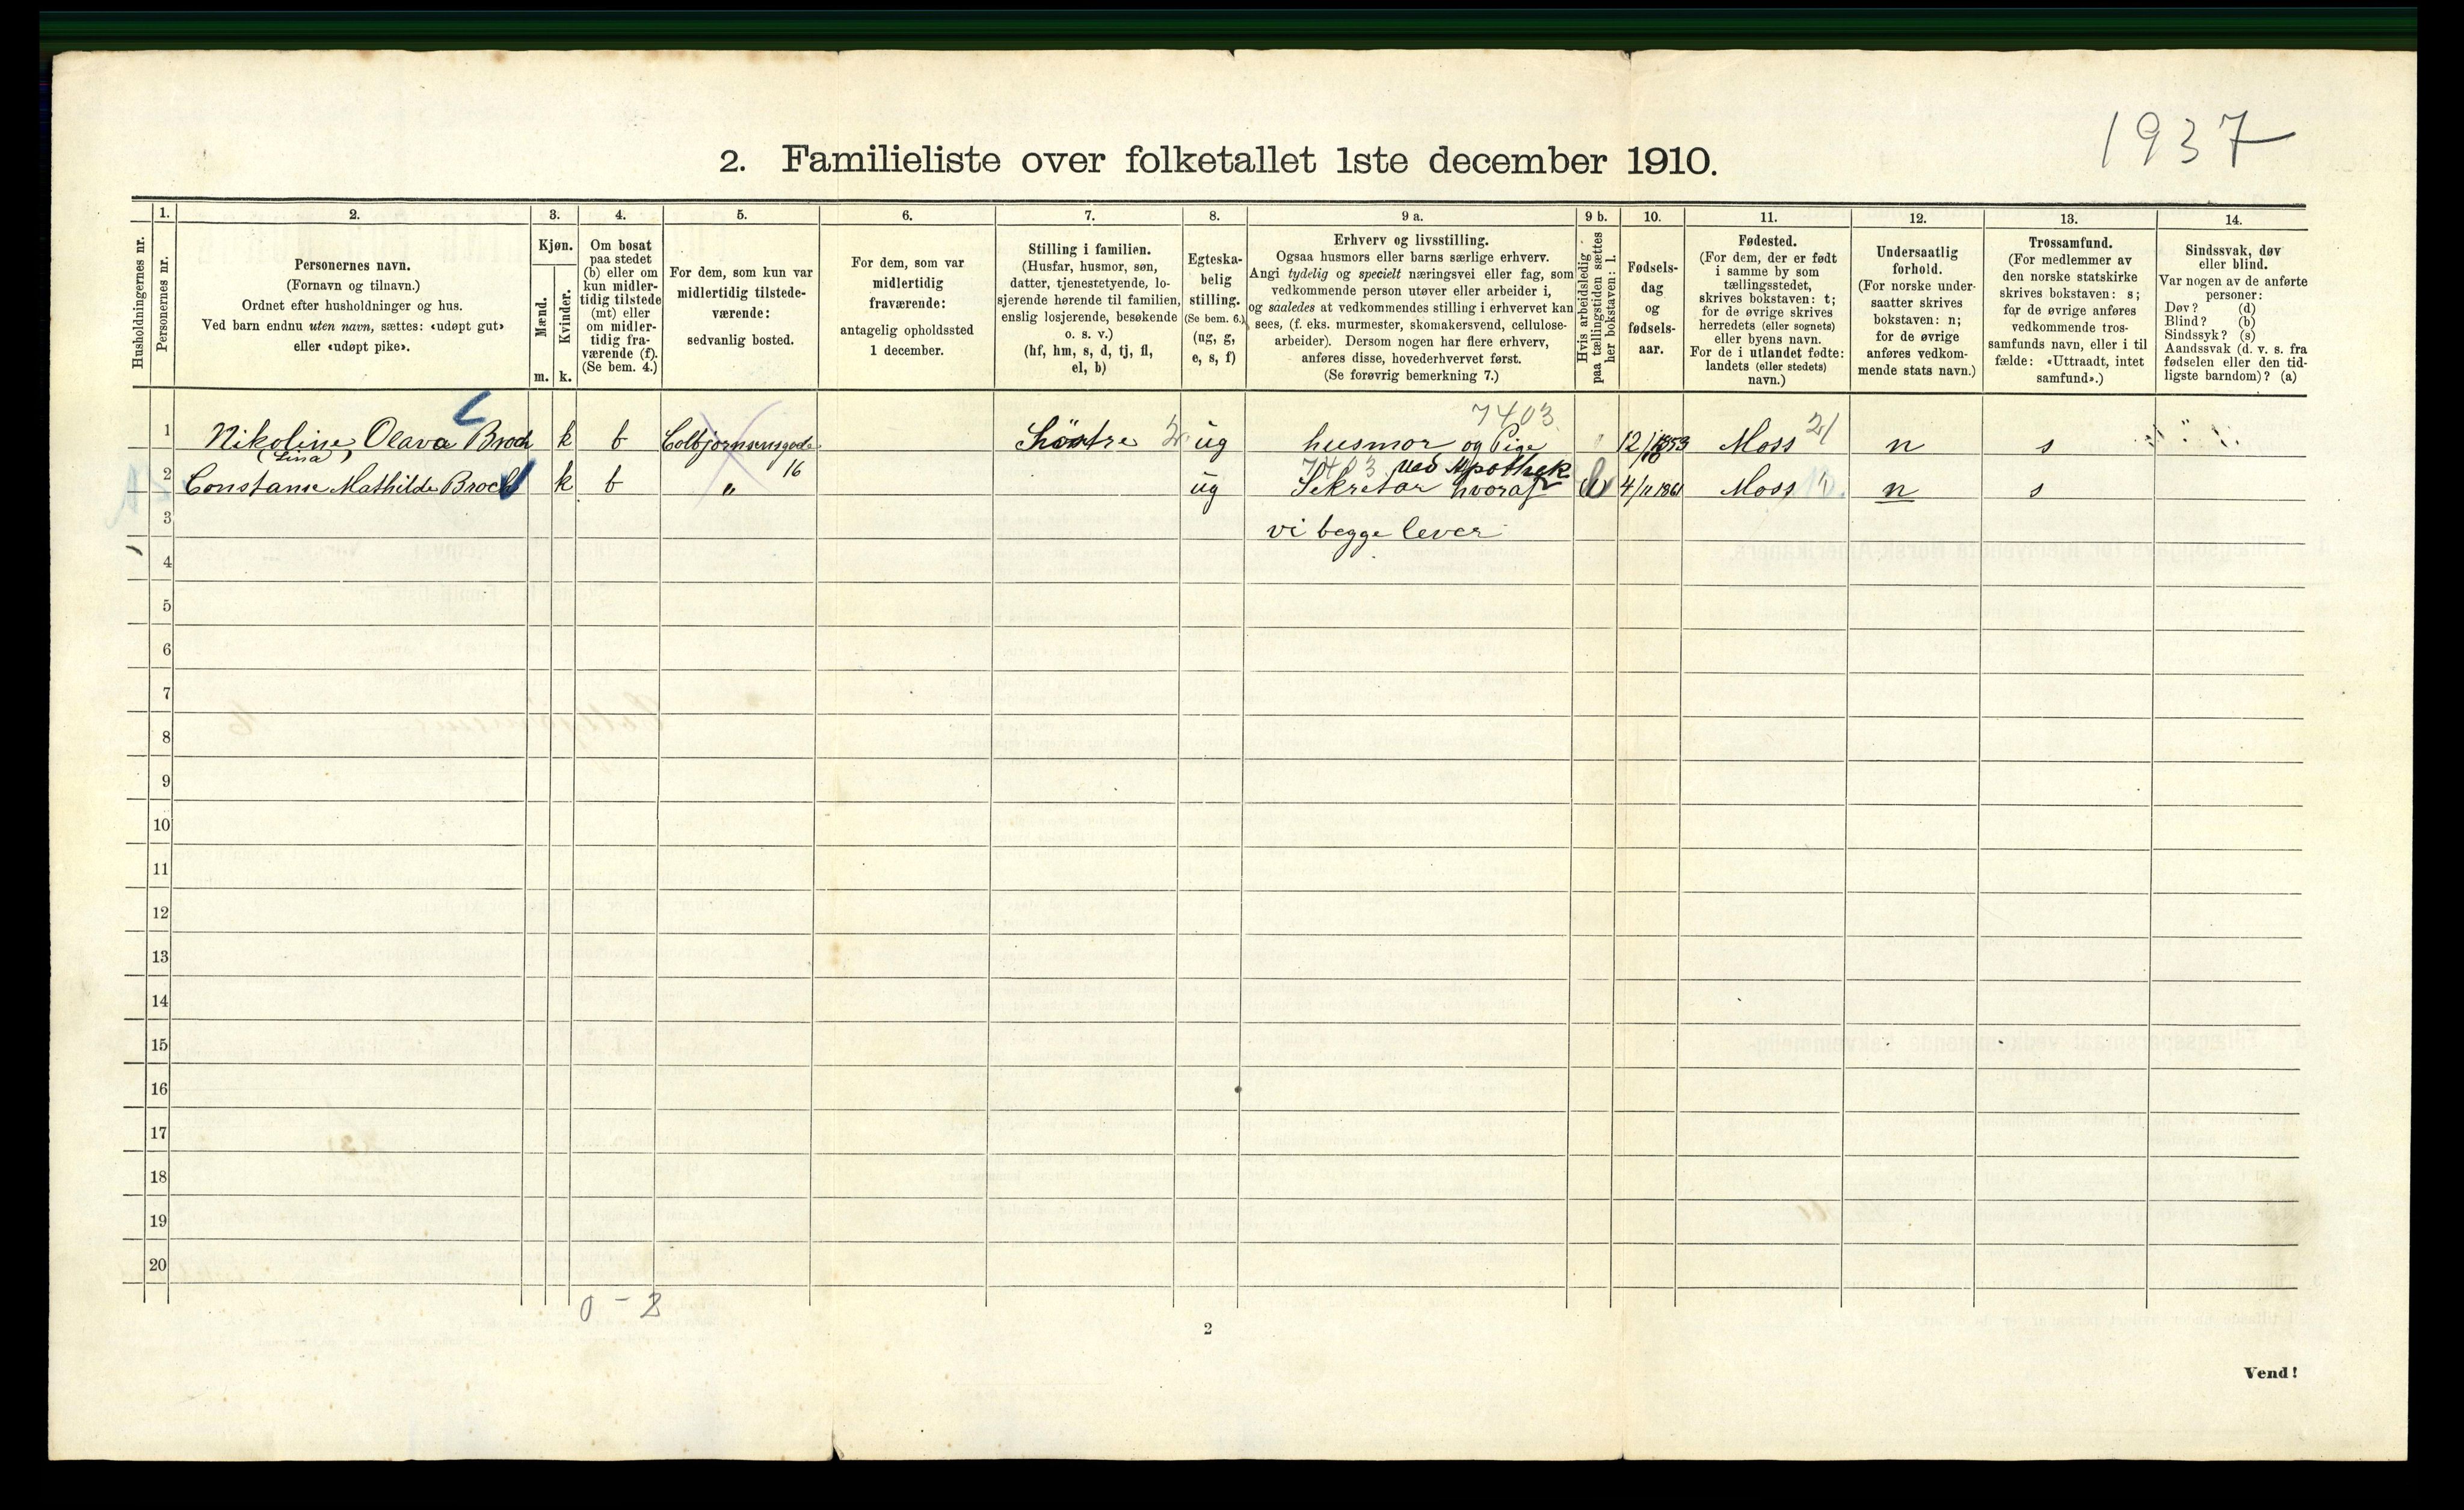 1937
2. Familieliste over folketallet 1ste december 1910.
Husholdningernes nr.
1.
Personernes nr.
2.
Personernes navn.
(Fornavn og tilnavn.)
Ordnet efter husholdninger og hus.
Ved barn endnu uten navn, sættes: «udøpt gut»
eller «udøpt pike».
3.
Kjøn.
Mænd.
Kvinder.
m. k.
4.
Om bosat
paa stedet
(b) eller om
kun midler-
tidig tilstede
(mt) eller
om midler-
tidig fra-
værende (f).
(Se bem. 4.)
5.
For dem, som kun var
midlertidig tilstede-
værende:
sedvanlig bosted.
6.
For dem, som var
midlertidig
fraværende:
antagelig opholdssted
1 december.
7.
Stilling i familien.
(Husfar, husmor, søn,
datter, tjenestetyende, lo-
sjerende hørende til familien,
enslig losjerende, besøkende
o. s. v.)
(hf, hm, s, d, tj, fl,
el, b)
8.
Egteska-
belig
stilling.
(Se bem. 6.)
(ug, g,
e, s, f)
9 a.
Erhverv og livsstilling.
Ogsaa husmors eller barns særlige erhverv.
Angi tydelig og specielt næringsvei eller fag, som
vedkommende person utøver eller arbeider i,
og saaledes at vedkommendes stilling i erhvervet kan
sees, (f. eks. murmester, skomakersvend, cellulose-
arbeider). Dersom nogen har flere erhverv,
anføres disse, hovederhvervet først.
(Se forøvrig bemerkning 7.)
9 b.
Hvis arbeidsledig
paa tællingstiden sættes
her bokstaven: l.
10.
Fødsels-
dag
og
fødsels-
aar.
11.
Fødested.
(For dem, der er født
i samme by som
tællingsstedet,
skrives bokstaven: t;
for de øvrige skrives
herredets (eller sognets)
eller byens navn.
For de i utlandet fødte:
landets (eller stedets)
navn.)
12.
Undersaatlig
forhold.
(For norske under-
saatter skrives
bokstaven: n;
for de øvrige
anføres vedkom-
mende stats navn.)
13.
Trossamfund.
(For medlemmer av
den norske statskirke
skrives bokstaven: s;
før de øvrige anføres
vedkommende tros-
samfunds navn, eller i til
fælde: «Uttraadt, intet
samfund».)
14.
Sindssvak, døv
eller blind.
Var nogen av de anførte
personer:
Døv? (d)
Blind? (b)
Sindssyk? (s)
Aandssvak (d. v. s. fra
fødselen eller den tid-
ligste barndom)? (a)
7403
1 Nikoline, Olava Broch k b Colbjørnsensgade ug husmor og Pige Moss 21 n s
(Lina)
16
7403 ved Apothek
2 Constanse Mathilde Broch k b " ug Sekretær hvoraf 4/11 1861 Moss n s
3 vi begge lever
4
5
6
7
8
9
10
11
12
13
14
15
16
17
18
19
20
0 - 2
2
Vend!